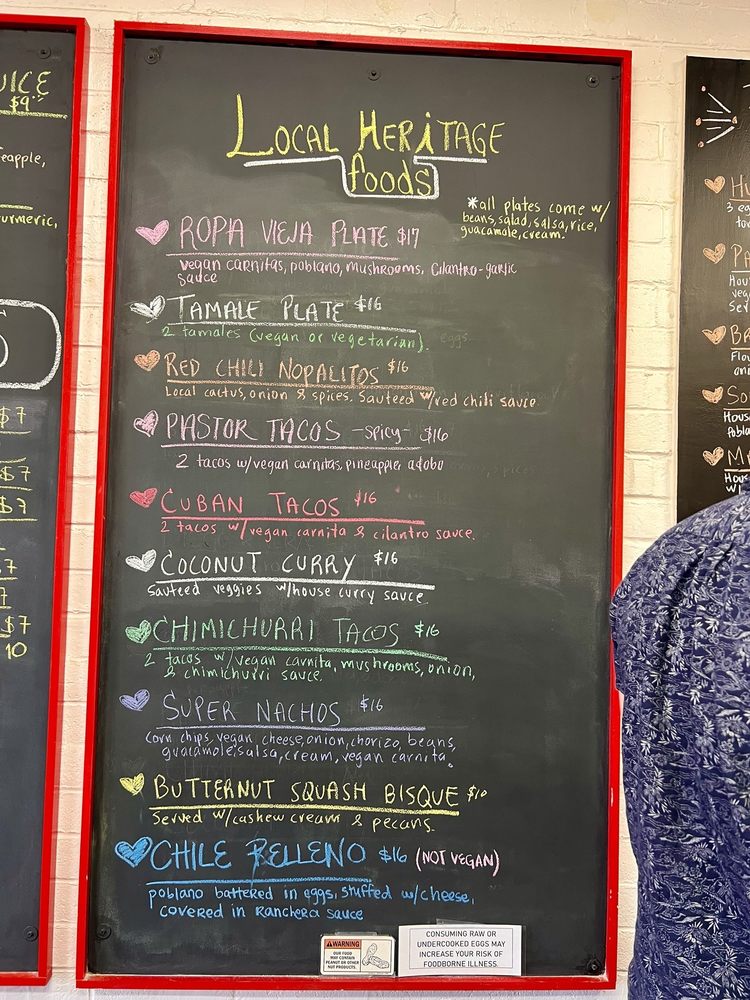 UICE
$9
eapple,
urmeric,
$7
$7
$7
$7
10
LOCAL HERiTAGE
foods
*all plates come w/
beans, salad, salsa, rice,
guacamole, cream.
ROPA VIEJA PLATE $17
vegan carnitas, poblano, mushrooms, cilantro-garlic
sauce
TAMALE PLATE $16
2 tamales (vegan or vegetarian).
RED CHILI NOPALITOS $16
Local cactus, onion & spices. Sauteed w/red chili sauce
PASTOR TACOS -spicy- $16
2 tacos w/vegan carnitas, pineapple, adobo
CUBAN TACOS $16
2 tacos w/vegan carnita & cilantro sauce.
COCONUT CURRY $16
Sauteed veggies w/house curry sauce
CHIMICHURRI TACOS $16
2 tacos w/vegan carnita, mushrooms, onion,
& chimichurri sauce.
SUPER NACHOS $16
corn chips, vegan cheese, onion, chorizo, beans,
guacamole, salsa, cream, vegan carnita.
BUTTERNUT SQUASH BISQUE $10
Served w/cashew cream & pecans.
CHILE RELLENO $16 (NOT VEGAN)
poblano battered in eggs, stuffed w/cheese,
covered in Ranchera sauce
WARNING
OUR FOOD
MAY CONTAIN
PEANUT OR OTHER
NUT PRODUCTS.
CONSUMING RAW OR
UNDERCOOKED EGGS MAY
INCREASE YOUR RISK OF
FOODBORNE ILLNESS.